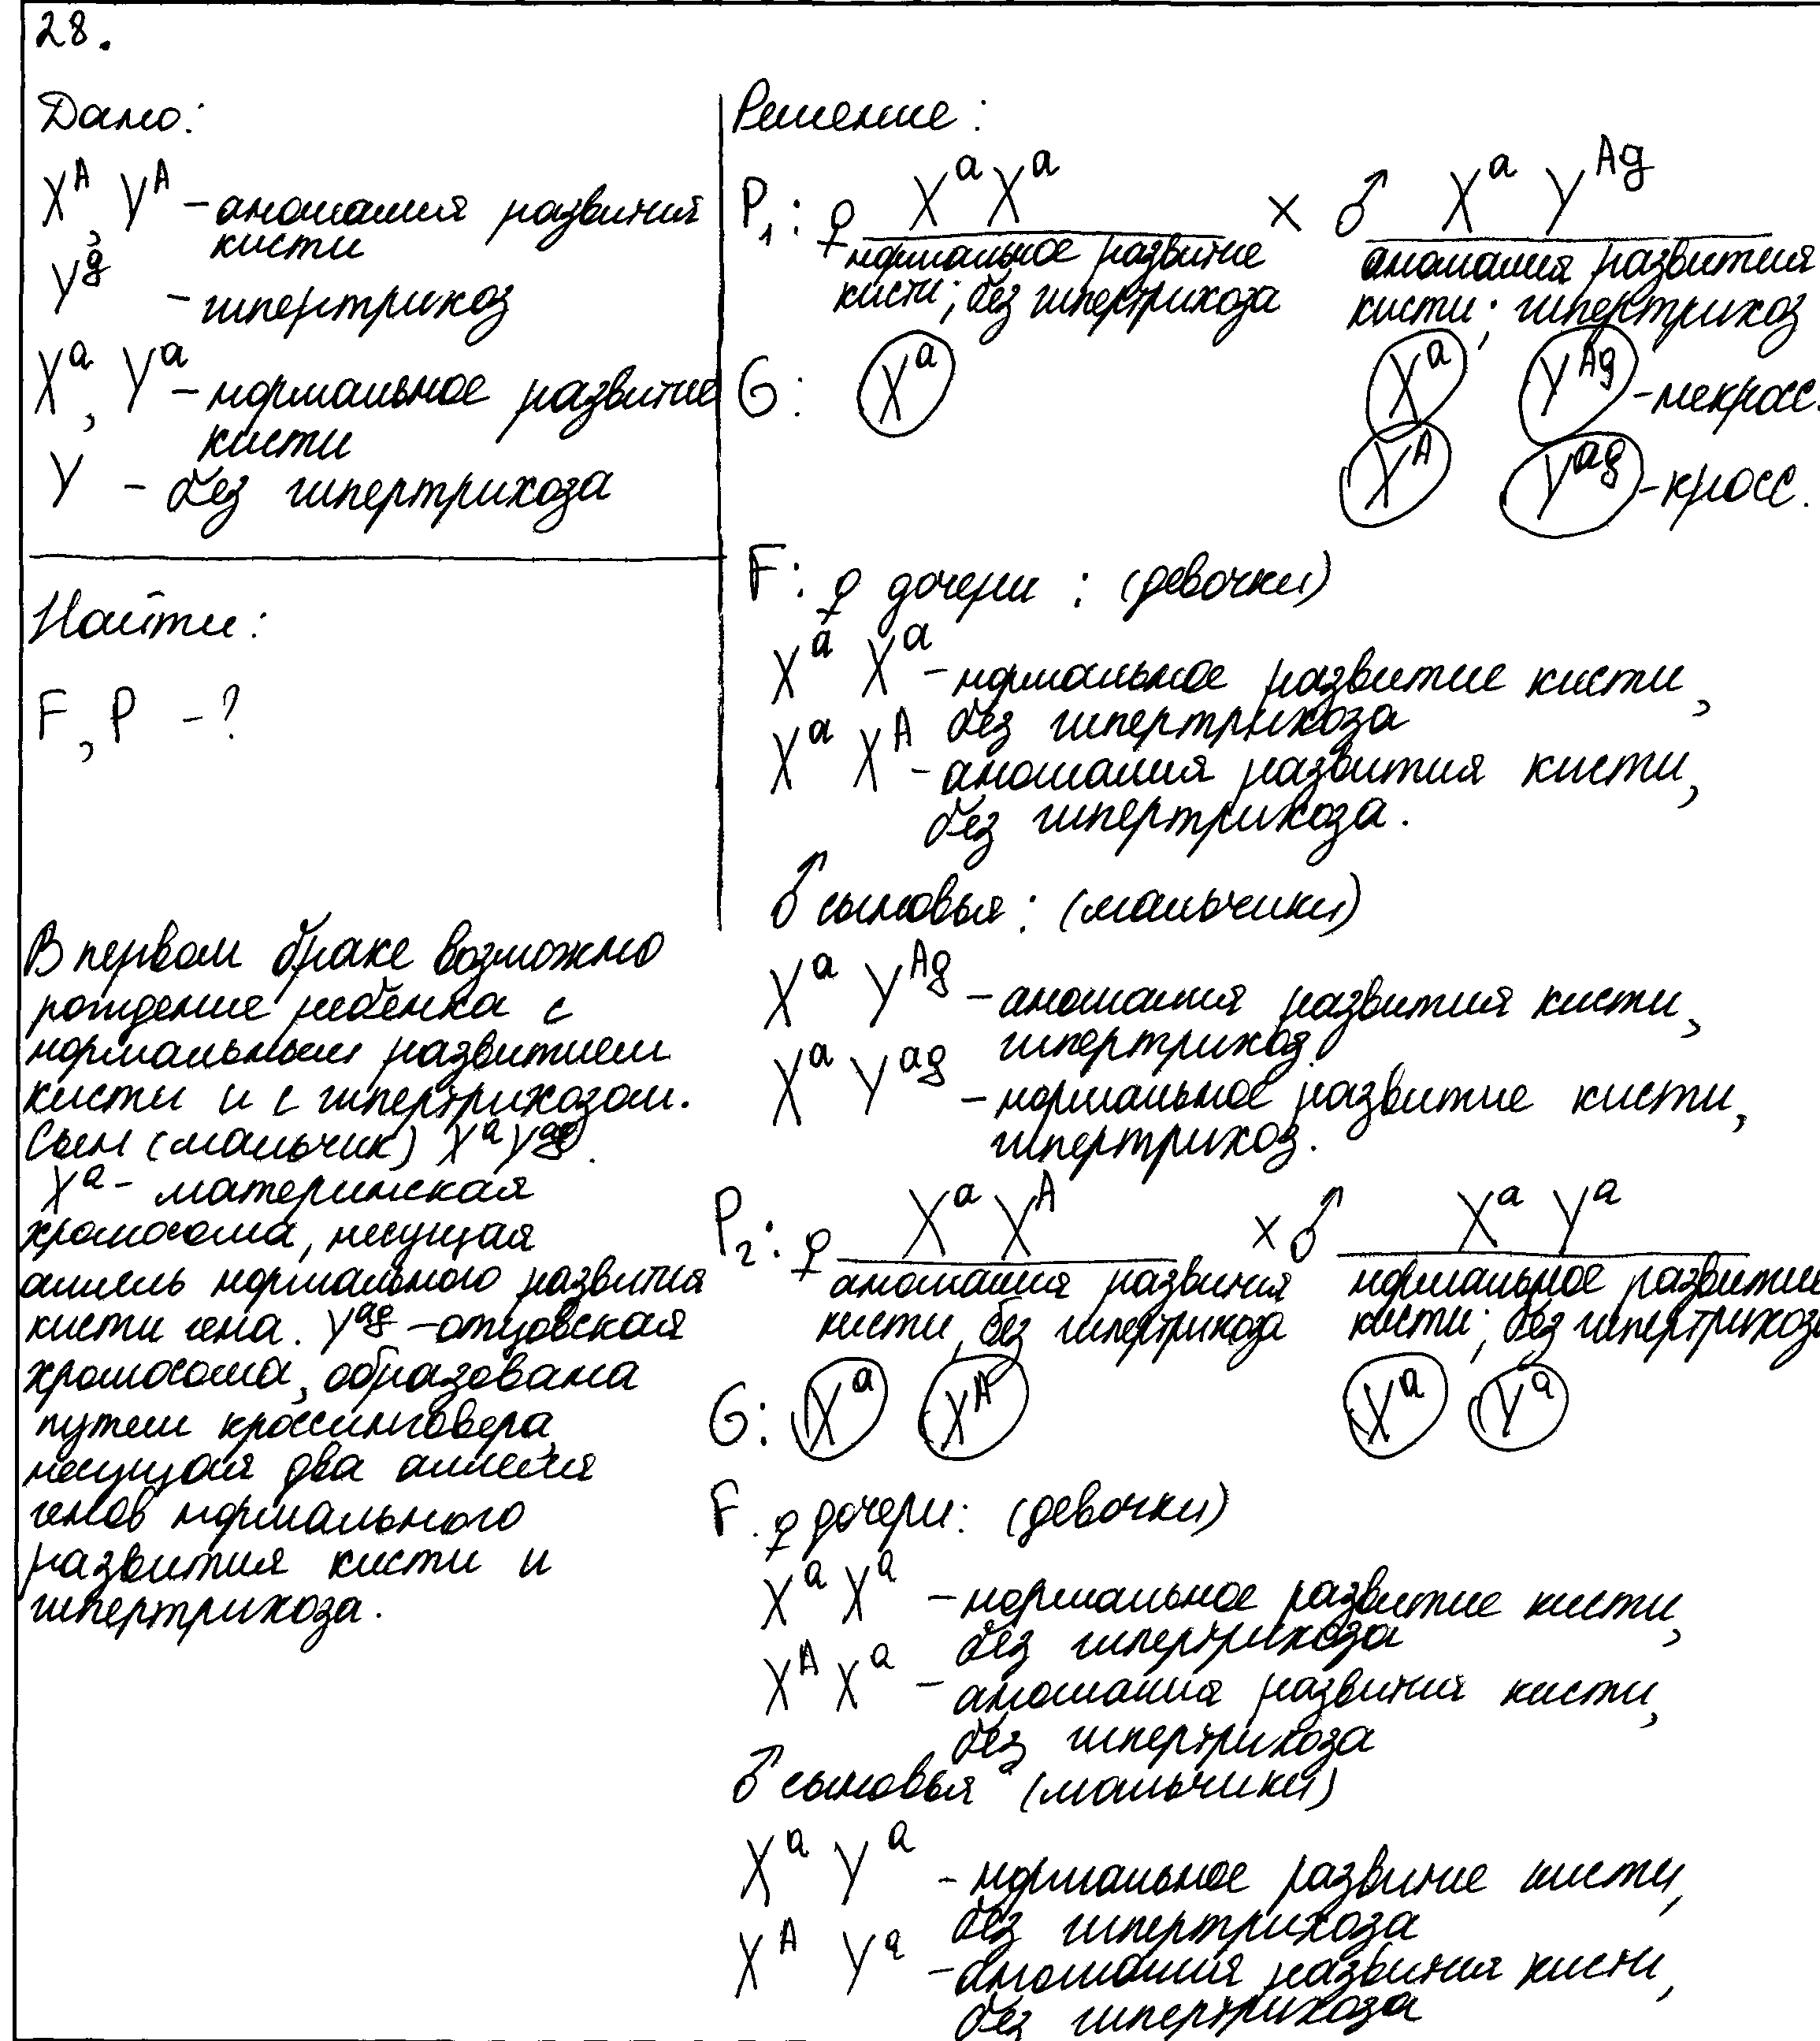 28.
Дано:
X^A, Y^A – аномалия развития
кисти
Y^g – гипертрихоз
X^a, Y^a – нормальное развитие
кисти
Y – без гипертрихоза
Найти:
F, P – ?
В первом браке возможно
рождение ребенка с
нормальным развитием
кисти и с гипертрихозом.
Сын (мальчик) X^a Y^ag.
X^a – материнская
хромосома, несущая
аллель нормального развития
кисти гена. Y^ag – отцовская
хромосома, образована
путем кроссинговера,
несущая два аллеля
генов нормального
развития кисти и
гипертрихоза.
Решение:
P₁: ♀ X^a X^a × ♂ X^a Y^Ag
нормальное развитие аномалия развития
кисти; без гипертрихоза кисти; гипертрихоз
G: X^a X^a Y^Ag – некросс.
X^A Y^ag – кросс.
F: ♀ дочери: (девочки)
X^a X^a – нормальное развитие кисти,
без гипертрихоза
X^a X^A – аномалия развития кисти,
без гипертрихоза.
♂ сыновья: (мальчики)
X^a Y^Ag – аномалия развития кисти,
гипертрихоз.
X^a Y^ag – нормальное развитие кисти,
гипертрихоз.
P₂: ♀ X^a X^A × ♂ X^a Y^a
аномалия развития нормальное развитие
кисти, без гипертрихоза кисти; без гипертрихоза
G: X^a X^A X^a Y^a
F. ♀ дочери: (девочки)
X^a X^a – нормальное развитие кисти,
без гипертрихоза
X^A X^a – аномалия развития кисти,
без гипертрихоза
♂ сыновья (мальчики)
X^a Y^a – нормальное развитие кисти,
без гипертрихоза
X^A Y^a – аномалия развития кисти,
без гипертрихоза